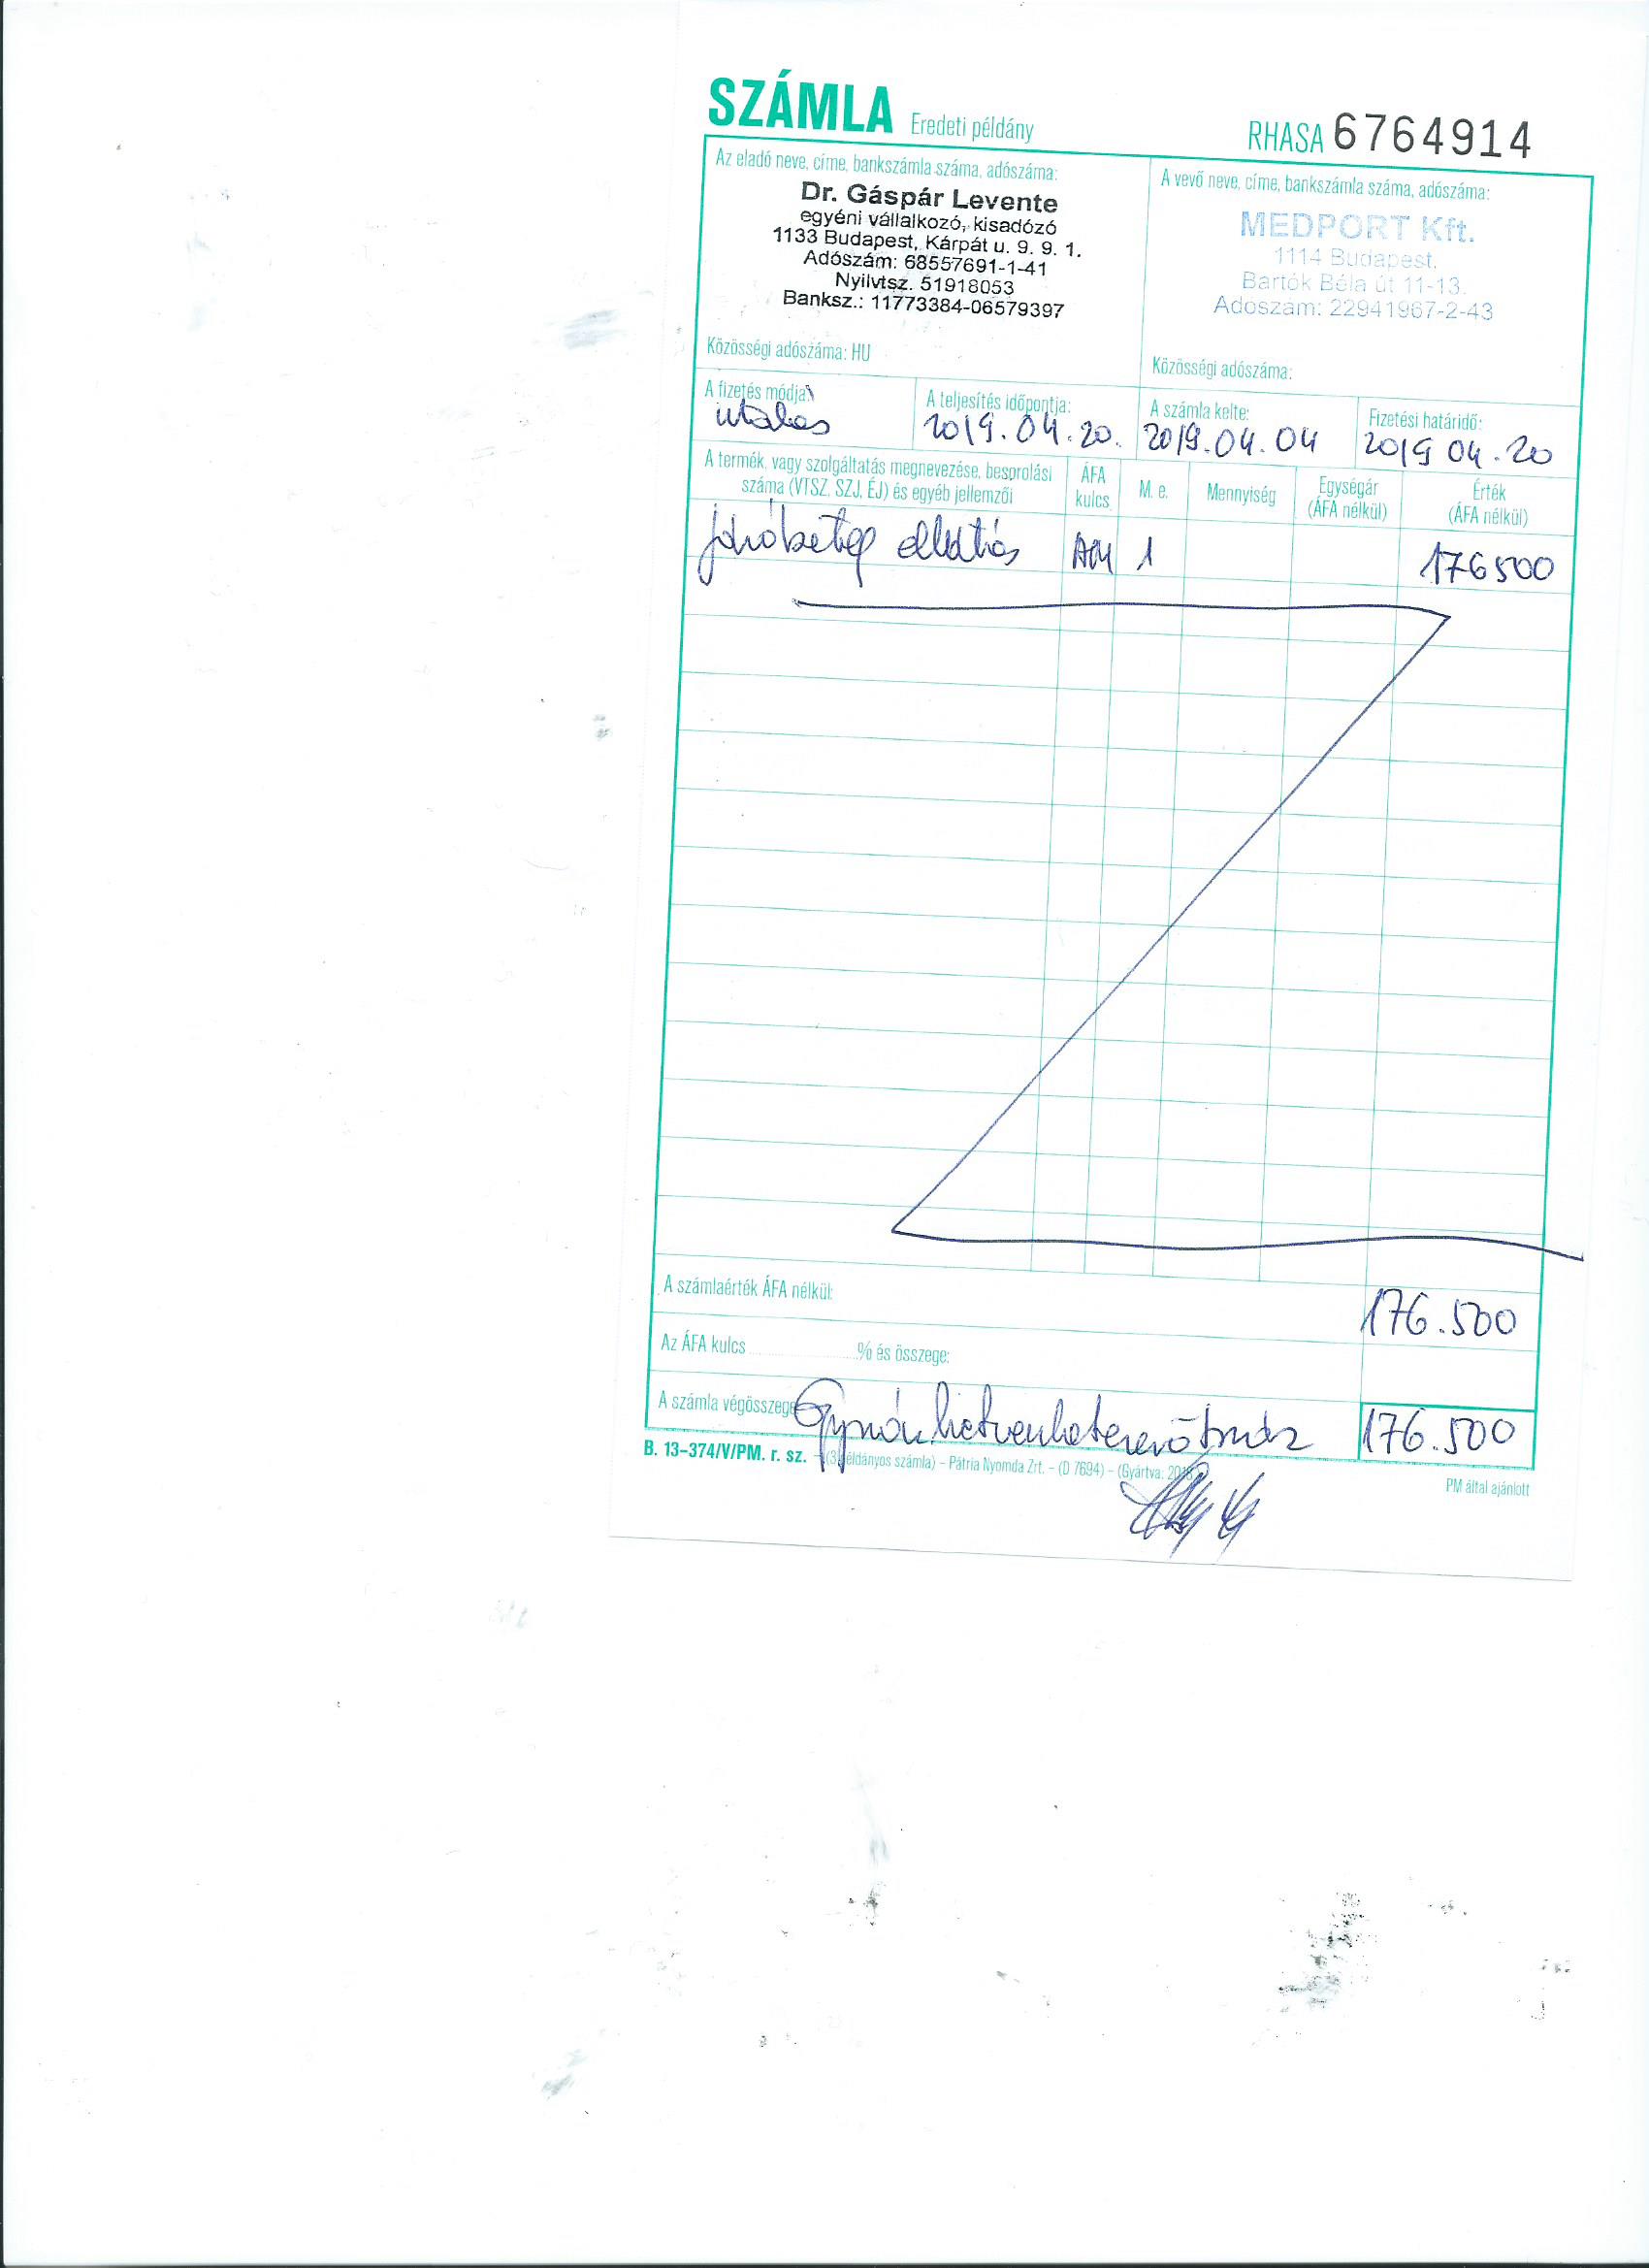 SZÁMLA Eredeti példány RHASA 6764914
Az eladó neve, címe, bankszámla száma, adószáma:
Dr. Gáspár Levente
egyéni vállalkozó, kisadózó
1133 Budapest, Kárpát u. 9. 9. 1.
Adószám: 68557691-1-41
Nyilvtsz. 51918053
Banksz.: 11773384-06579397
Közösségi adószáma: HU
A vevő neve, címe, bankszámla száma, adószáma:
MEDPORT Kft.
1114 Budapest,
Bartók Béla út 11-13.
Adószám: 22941967-2-43
Közösségi adószáma:
A fizetés módja: A teljesítés időpontja: A számla kelte: Fizetési határidő:
utalas 2019.04.20. 2019.04.04 2019 04.20
A termék, vagy szolgáltatás megnevezése, besorolási
száma (VTSZ, SZJ, ÉJ) és egyéb jellemzői
ÁFA
kulcs
M. e.
Mennyiség
Egységár
(ÁFA nélkül)
Érték
(ÁFA nélkül)
járóbeteg ellátás AM 1 176500
A számlaérték ÁFA nélkül: 176.500
Az ÁFA kulcs ............ % és összege:
A számla végösszege 176.500
B. 13-374/V/PM. r. sz. – (3 példányos számla) – Pátria Nyomda Zrt. – (D 7694) – (Gyártva:
PM által ajánlott